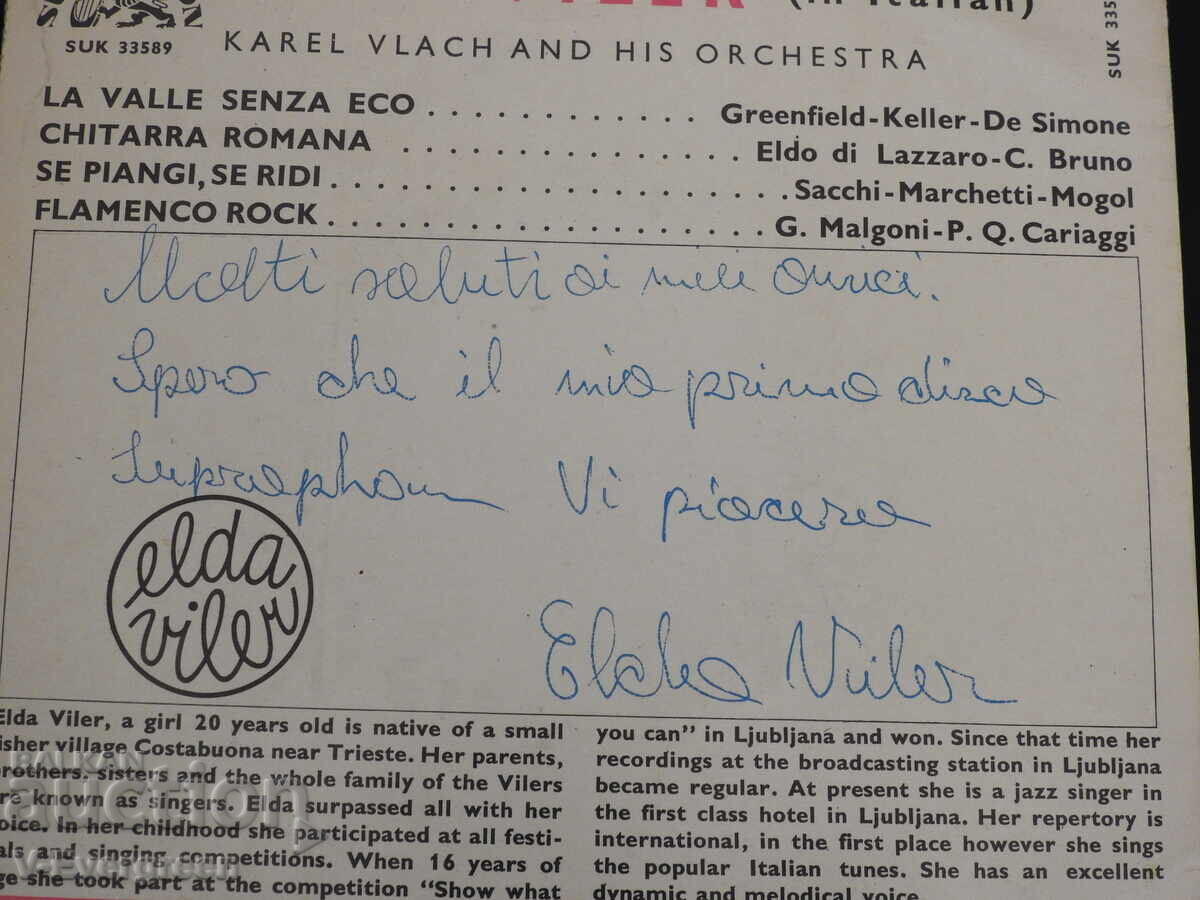 (in Italian)
SUK 33589
KAREL VLACH AND HIS ORCHESTRA
SUK 335
LA VALLE SENZA ECO . . . . . . . . . . . . . Greenfield-Keller-De Simone
CHITARRA ROMANA . . . . . . . . . . . . . . . . Eldo di Lazzaro-C. Bruno
SE PIANGI, SE RIDI . . . . . . . . . . . . . . . . . . . . . Sacchi-Marchetti-Mogol
FLAMENCO ROCK . . . . . . . . . . . . . . . . . . . . G. Malgoni-P. Q. Cariaggi
Molti saluti ai miei amici.
Spero che il mio primo disco
Supraphon Vi piacera
elda
viler
Elda Viler
Elda Viler, a girl 20 years old is native of a small
isher village Costabuona near Trieste. Her parents,
brothers, sisters and the whole family of the Vilers
re known as singers. Elda surpassed all with her
oice. In her childhood she participated at all festi-
als and singing competitions. When 16 years of
ge she took part at the competition "Show what
you can" in Ljubljana and won. Since that time her
recordings at the broadcasting station in Ljubljana
became regular. At present she is a jazz singer in
the first class hotel in Ljubljana. Her repertory is
international, in the first place however she sings
the popular Italian tunes. She has an excellent
dynamic and melodical voice.
BALKAN
auction
Vt-Evergreen